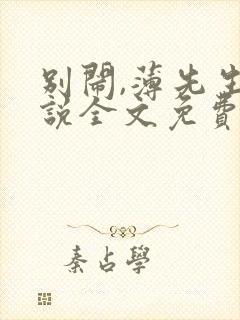 別鬧,薄先生
說全文免費
秦占學